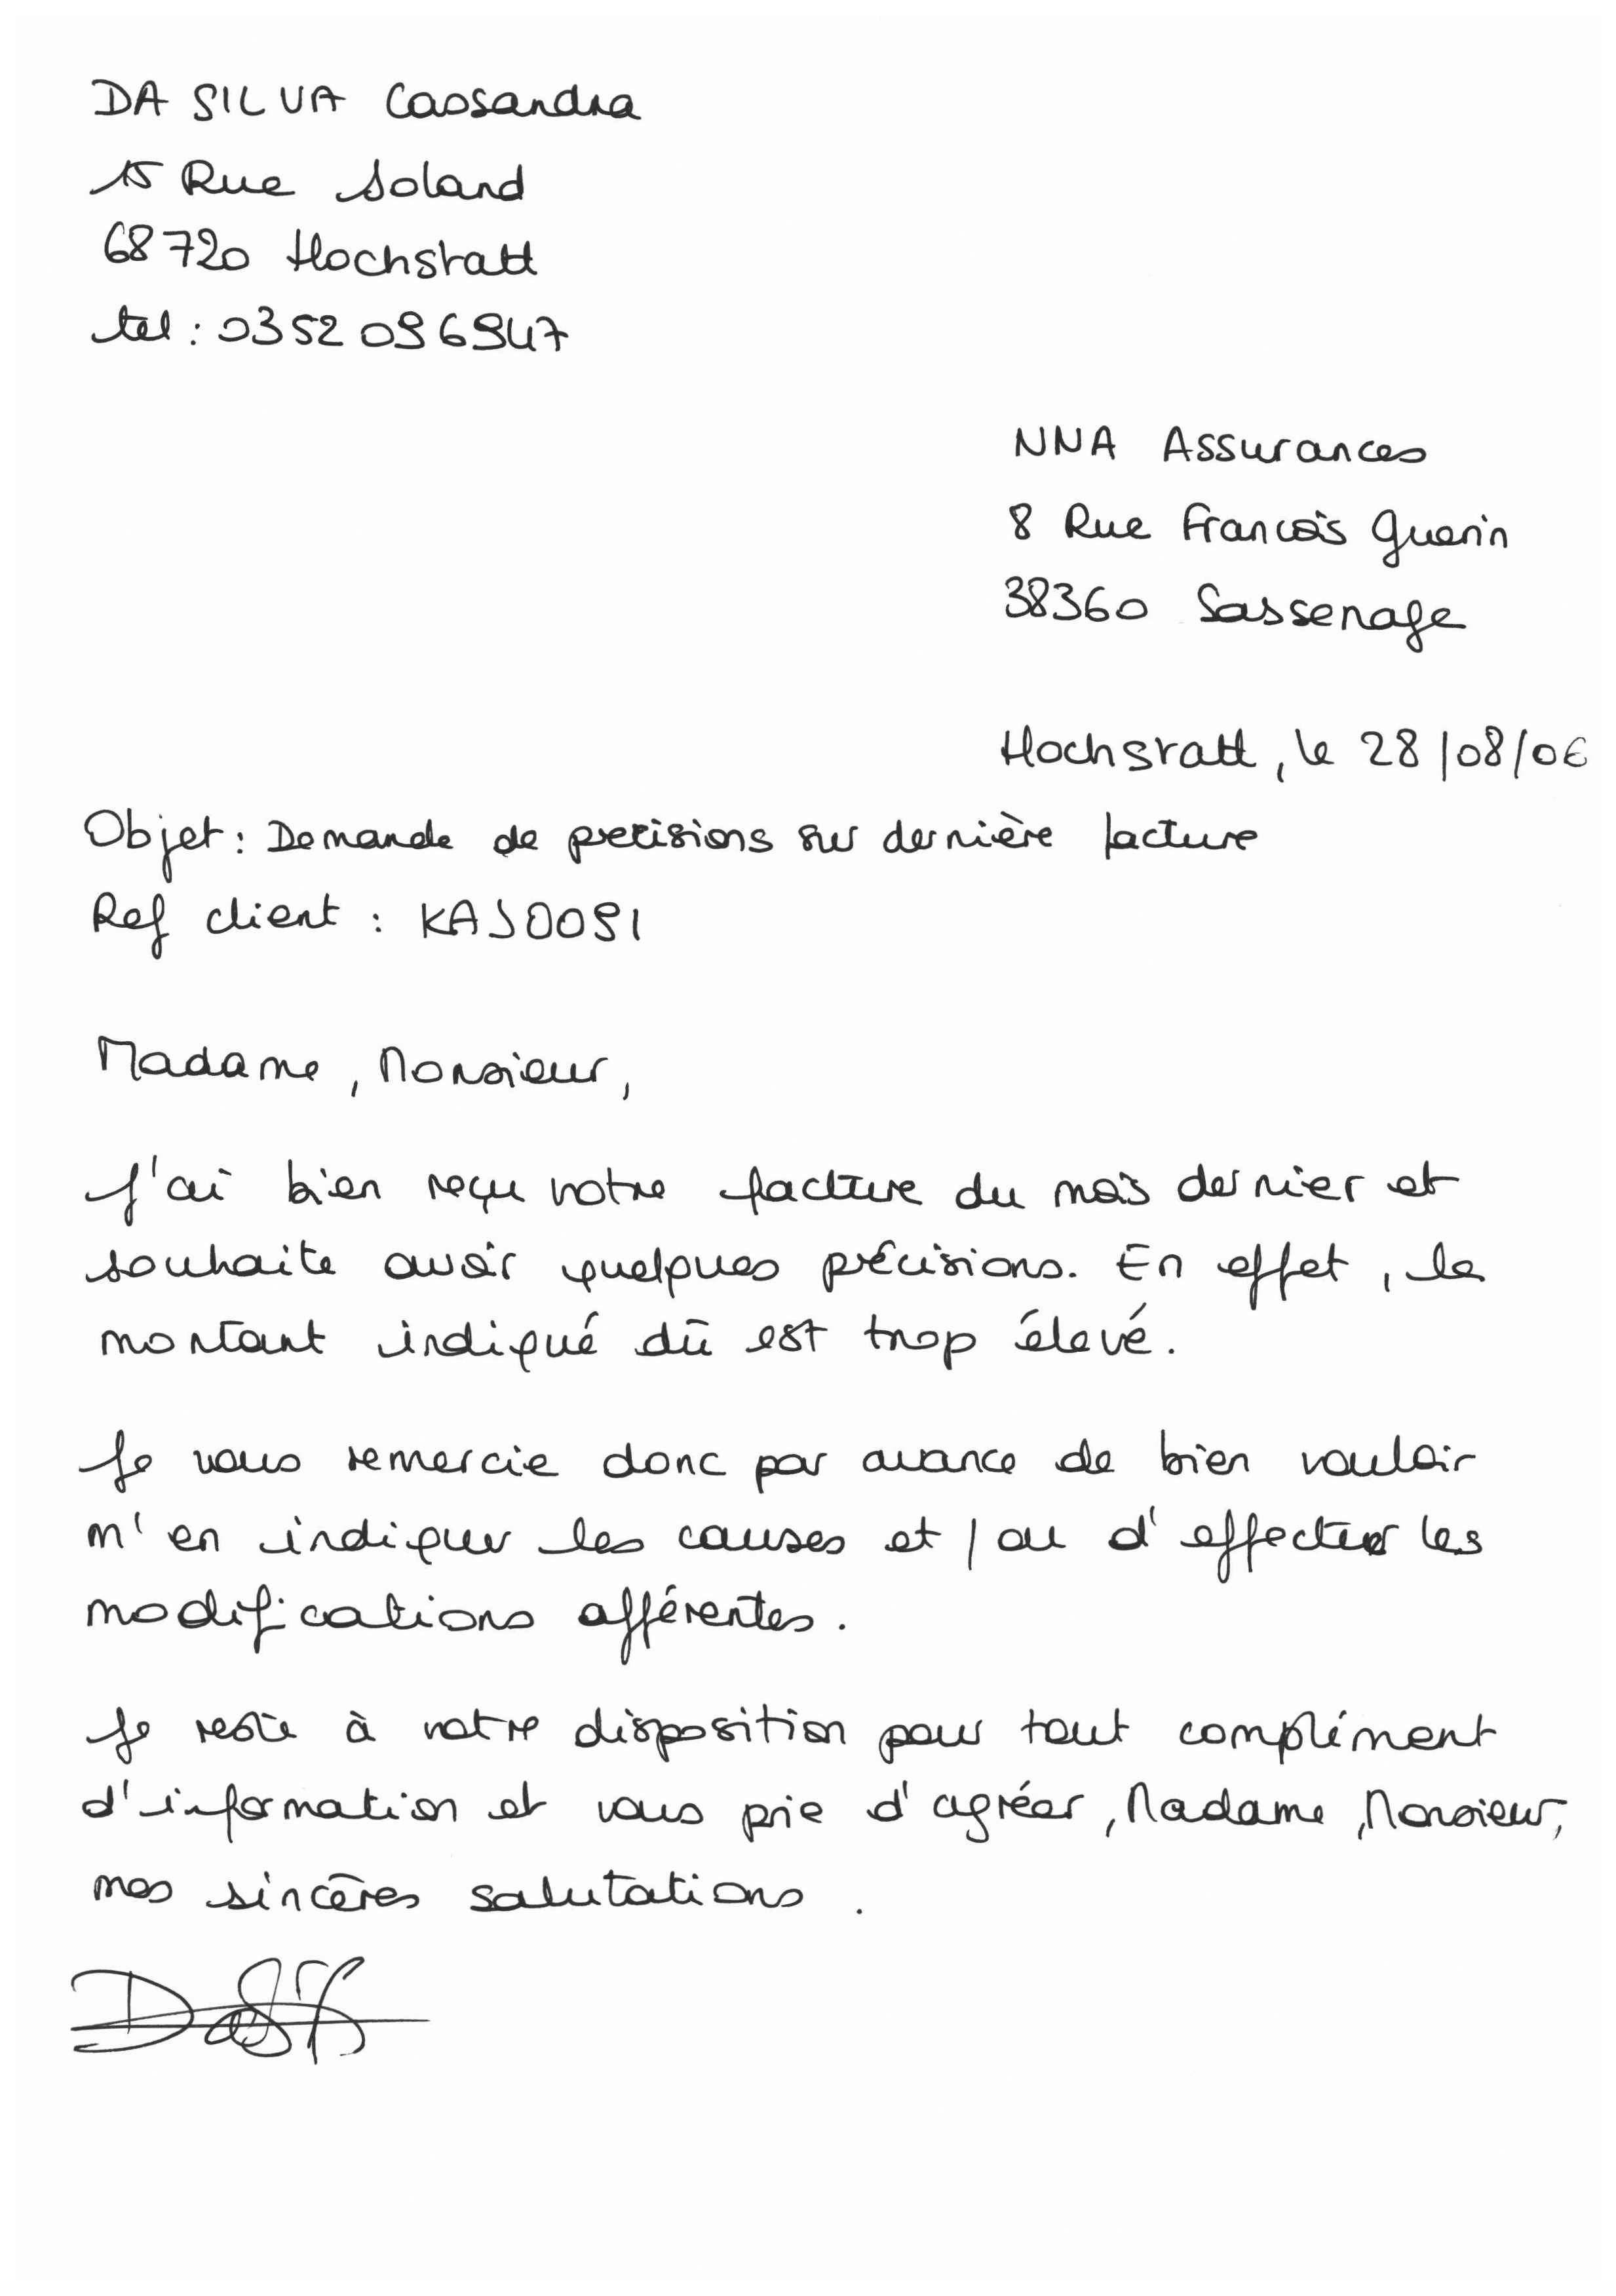 DA SILVA Cassandra
15 Rue Soland
68720 Hochstatt
tel : 0352096947
NNA Assurances
8 Rue Francois Guerin
38360 Sassenage
Hochstatt, le 28/08/06
Objet : Demande de precisions sur dernière facture
Ref client : KAJ0091
Madame, Monsieur,
J'ai bien reçu votre facture du mois dernier et
souhaite avoir quelques précisions. En effet, le
montant indiqué dû est trop élevé.
Je vous remercie donc par avance de bien vouloir
m'en indiquer les causes et/ou d'effectuer les
modifications afférentes.
Je reste à votre disposition pour tout complément
d'information et vous prie d'agréer, Madame, Monsieur,
mes sincères salutations.